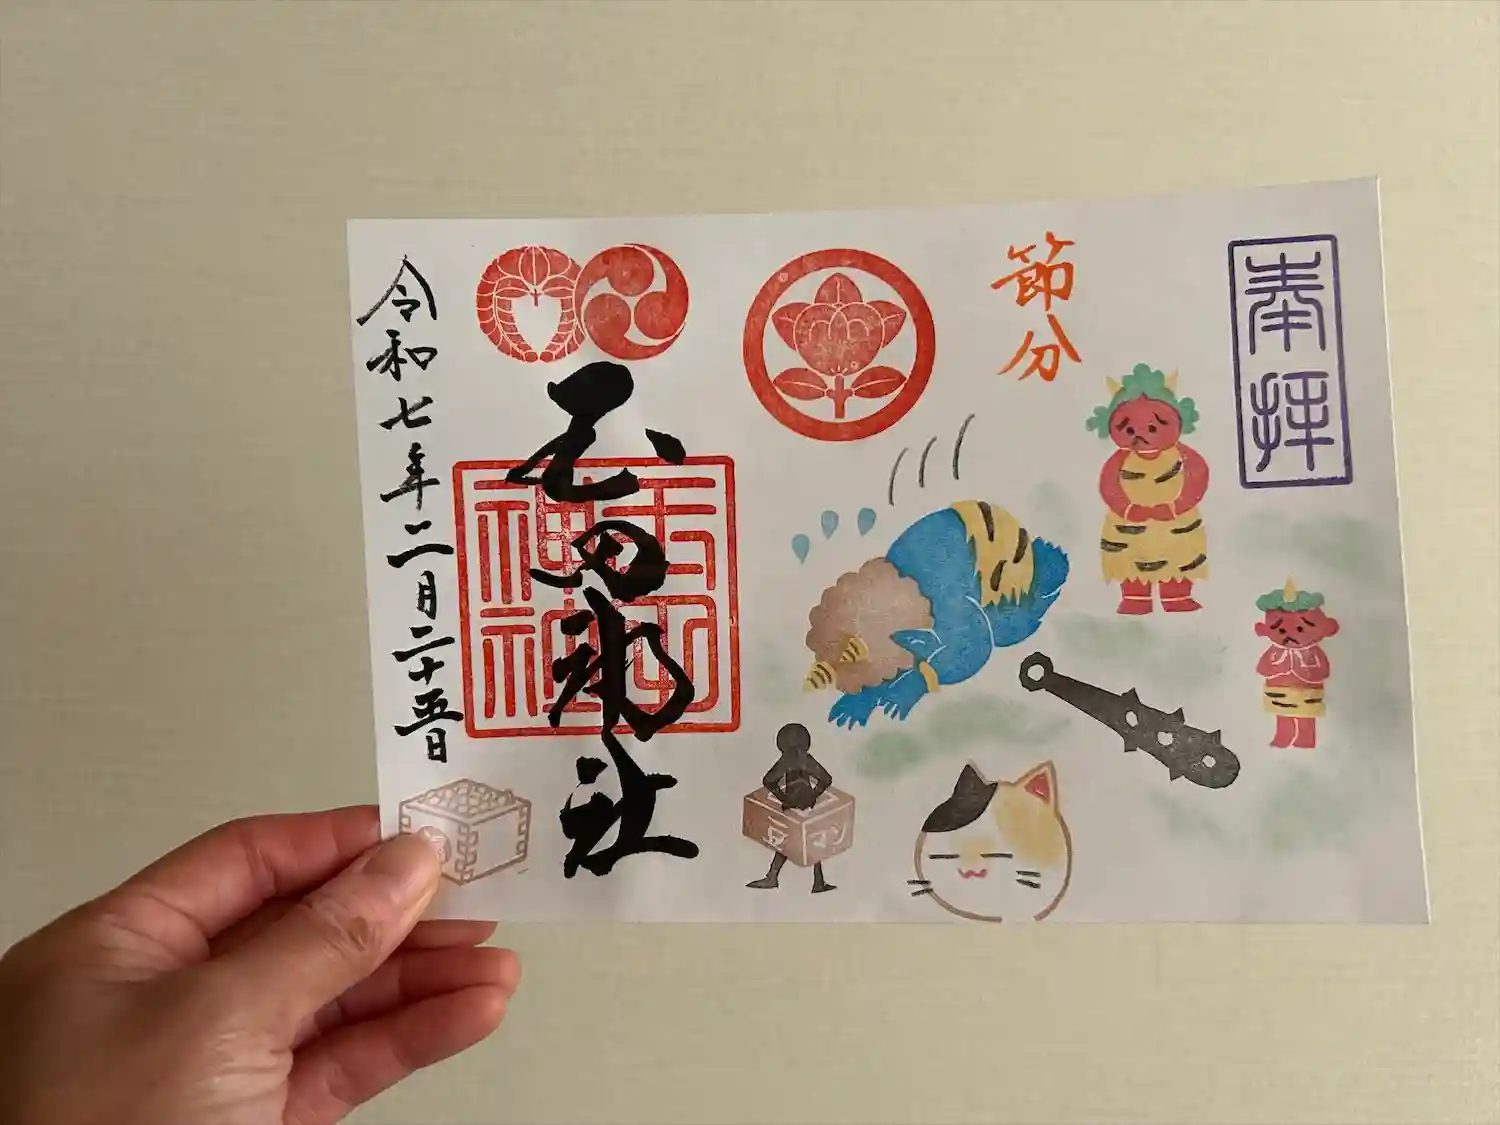 奉拝
節分
豆マン
玉田神社
玉田
神社
令和七年二月二十五日